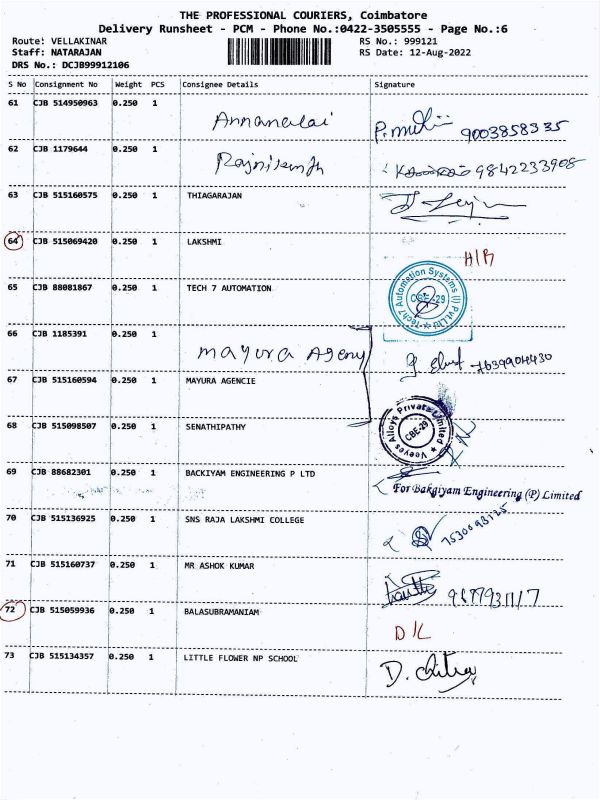 THE PROFESSIONAL COURIERS, Coimbatore
Delivery Runsheet - PCM - Phone No.:0422-3505555 - Page No.:6
Route: VELLAKINAR
RS No.: 999121
Staff: NATARAJAN
RS Date: 12-Aug-2022
DRS No.: DCJB99912106
S No Consignment No Weight PCS Consignee Details Signature
61 CJB 514950963 0.250 1 Annamalai P.muthu 9003858335
62 CJB 1179644 0.250 1 Rajnikanth 9842233908
63 CJB 515160575 0.250 1 THIAGARAJAN
64 CJB 515069420 0.250 1 LAKSHMI
H/R
65 CJB 88081867 0.250 1 TECH 7 AUTOMATION
Tech7 Automation Systems (I) Pvt Ltd
CBE-29
66 CJB 1185391 0.250 1 Mayura Agency
67 CJB 515160594 0.250 1 MAYURA AGENCIE
68 CJB 515098507 0.250 1 SENATHIPATHY
Veeyes Alloys Private Limited
CBE-29
69 CJB 88682301 0.250 1 BACKIYAM ENGINEERING P LTD
For Bakgiyam Engineering (P) Limited
70 CJB 515136925 0.250 1 SNS RAJA LAKSHMI COLLEGE
71 CJB 515160737 0.250 1 MR ASHOK KUMAR
72 CJB 515059936 0.250 1 BALASUBRAMANIAM
D/L
73 CJB 515134357 0.250 1 LITTLE FLOWER NP SCHOOL D. Chitra